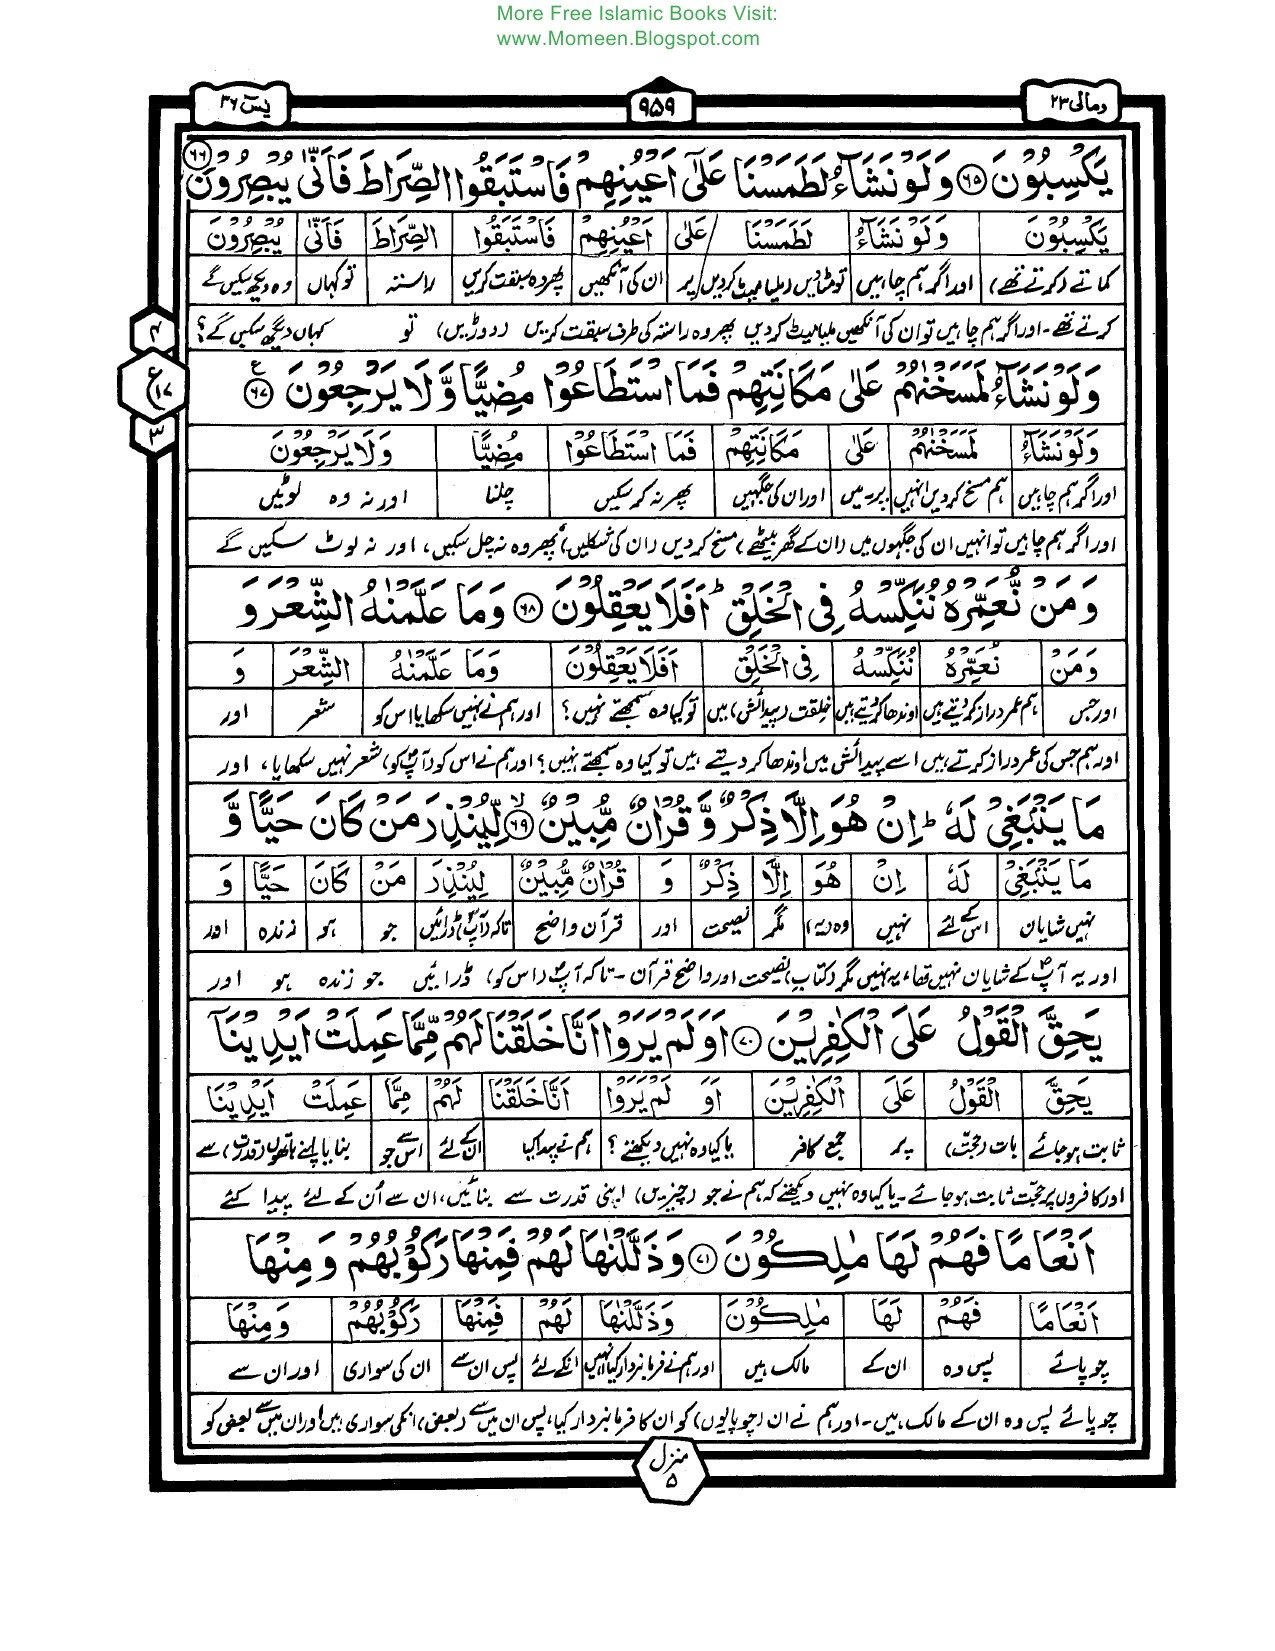 More Free Islamic Books Visit:
www.Momeen.Blogspot.com
ومالی ۲۳
۹۵۹
یٰسٓ ۳۶
يَكْسِبُوْنَ ۶۵ وَلَوْ نَشَآءُ لَطَمَسْنَا عَلٰٓى اَعْيُنِهِمْ فَاسْتَبَقُوا الصِّرَاطَ فَاَنّٰى يُبْصِرُوْنَ ۶۶
يَكْسِبُوْنَ وَلَوْ نَشَآءُ لَطَمَسْنَا عَلٰٓى اَعْيُنِهِمْ فَاسْتَبَقُوا الصِّرَاطَ فَاَنّٰى يُبْصِرُوْنَ
کماتے (کرتے تھے) اور اگر ہم چاہیں تو مٹا دیں (ملیا میٹ کر دیں) پر ان کی آنکھیں پھر وہ سبقت کریں راستہ تو کہاں وہ دیکھ سکیں گے
کرتے تھے۔ اور اگر ہم چاہیں تو ان کی آنکھیں ملیا میٹ کر دیں پھر وہ راستہ کی طرف سبقت کریں (دوڑیں) تو کہاں دیکھ سکیں گے؟
وَلَوْ نَشَآءُ لَمَسَخْنٰهُمْ عَلٰى مَكَانَتِهِمْ فَمَا اسْتَطَاعُوْا مُضِيًّا وَّلَا يَرْجِعُوْنَ ۶۷
۴
ع
۱۷
۳
وَلَوْ نَشَآءُ لَمَسَخْنٰهُمْ عَلٰى مَكَانَتِهِمْ فَمَا اسْتَطَاعُوْا مُضِيًّا وَلَا يَرْجِعُوْنَ
اور اگر ہم چاہیں ہم مسخ کر دیں انہیں پر۔ میں اور ان کی جگہیں پھر نہ کر سکیں چلنا اور نہ وہ لوٹیں
اور اگر ہم چاہیں تو انہیں ان کی جگہوں میں (ان کے گھر بیٹھے) مسخ کر دیں (ان کی شکلیں) پھر وہ نہ چل سکیں، اور نہ لوٹ سکیں گے
وَمَنْ نُّعَمِّرْهُ نُنَكِّسْهُ فِى الْخَلْقِ ؕ اَفَلَا يَعْقِلُوْنَ ۶۸ وَمَا عَلَّمْنٰهُ الشِّعْرَ وَ
وَمَنْ نُعَمِّرْهُ نُنَكِّسْهُ فِى الْخَلْقِ اَفَلَا يَعْقِلُوْنَ وَمَا عَلَّمْنٰهُ الشِّعْرَ وَ
اور جس ہم عمر دراز کر دیتے ہیں اوندھا کر دیتے ہیں خلقت (پیدائش) میں تو کیا وہ سمجھتے نہیں؟ اور ہم نے نہیں سکھایا اس کو شعر اور
اور ہم جس کی عمر دراز کرتے ہیں اسے پیدائش میں اوندھا کر دیتے ہیں تو کیا وہ سمجھتے نہیں؟ اور ہم نے اس کو (آپؐ کو) شعر نہیں سکھایا، اور
مَا يَنْۢبَغِىْ لَهٗ ؕ اِنْ هُوَ اِلَّا ذِكْرٌ وَّ قُرْاٰنٌ مُّبِيْنٌ ۶۹ لِّيُنْذِرَ مَنْ كَانَ حَيًّا وَّ
مَا يَنْۢبَغِىْ لَهٗ اِنْ هُوَ اِلَّا ذِكْرٌ وَ قُرْاٰنٌ مُّبِيْنٌ لِيُنْذِرَ مَنْ كَانَ حَيًّا وَّ
نہیں شایان اس کے لئے نہیں وہ (یہ) مگر نصیحت اور قرآن واضح تاکہ (آپؐ) ڈرائیں جو ہو زندہ اور
اور یہ آپؐ کے شایان نہیں تھا، یہ نہیں مگر (کتاب) نصیحت اور واضح قرآن۔ تاکہ آپؐ (اس کو) ڈرائیں جو زندہ ہو اور
يَحِقَّ الْقَوْلُ عَلَى الْكٰفِرِيْنَ ۷۰ اَوَلَمْ يَرَوْا اَنَّا خَلَقْنَا لَهُمْ مِّمَّا عَمِلَتْ اَيْدِيْنَآ
يَحِقَّ الْقَوْلُ عَلَى الْكٰفِرِيْنَ اَوَ لَمْ يَرَوْا اَنَّا خَلَقْنَا لَهُمْ مِمَّا عَمِلَتْ اَيْدِيْنَا
ثابت ہو جائے بات (حجت) پر جمع کافر یا کیا وہ نہیں دیکھتے؟ ہم نے پیدا کیا ان کے لئے اس سے جو بنایا اپنے ہاتھوں (قدرت) سے
اور کافروں پر حجت ثابت ہو جائے۔ یا کیا وہ نہیں دیکھتے کہ ہم نے جو (چیزیں) اپنی قدرت سے بنائیں، ان سے اُن کے لئے پیدا کئے
اَنْعَامًا فَهُمْ لَهَا مٰلِكُوْنَ ۷۱ وَذَلَّلْنٰهَا لَهُمْ فَمِنْهَا رَكُوْبُهُمْ وَمِنْهَا
اَنْعَامًا فَهُمْ لَهَا مٰلِكُوْنَ وَذَلَّلْنٰهَا لَهُمْ فَمِنْهَا رَكُوْبُهُمْ وَمِنْهَا
چوپائے پس وہ ان کے مالک ہیں اور ہم نے فرمانبردار کیا انہیں انکے لئے پس ان سے ان کی سواری اور ان سے
چوپائے پس وہ ان کے مالک ہیں۔ اور ہم نے ان (چوپایوں) کو ان کا فرمانبردار کیا، پس ان میں سے (بعض) انکی سواری ہیں اور ان میں سے بعض کو
منزل
۵